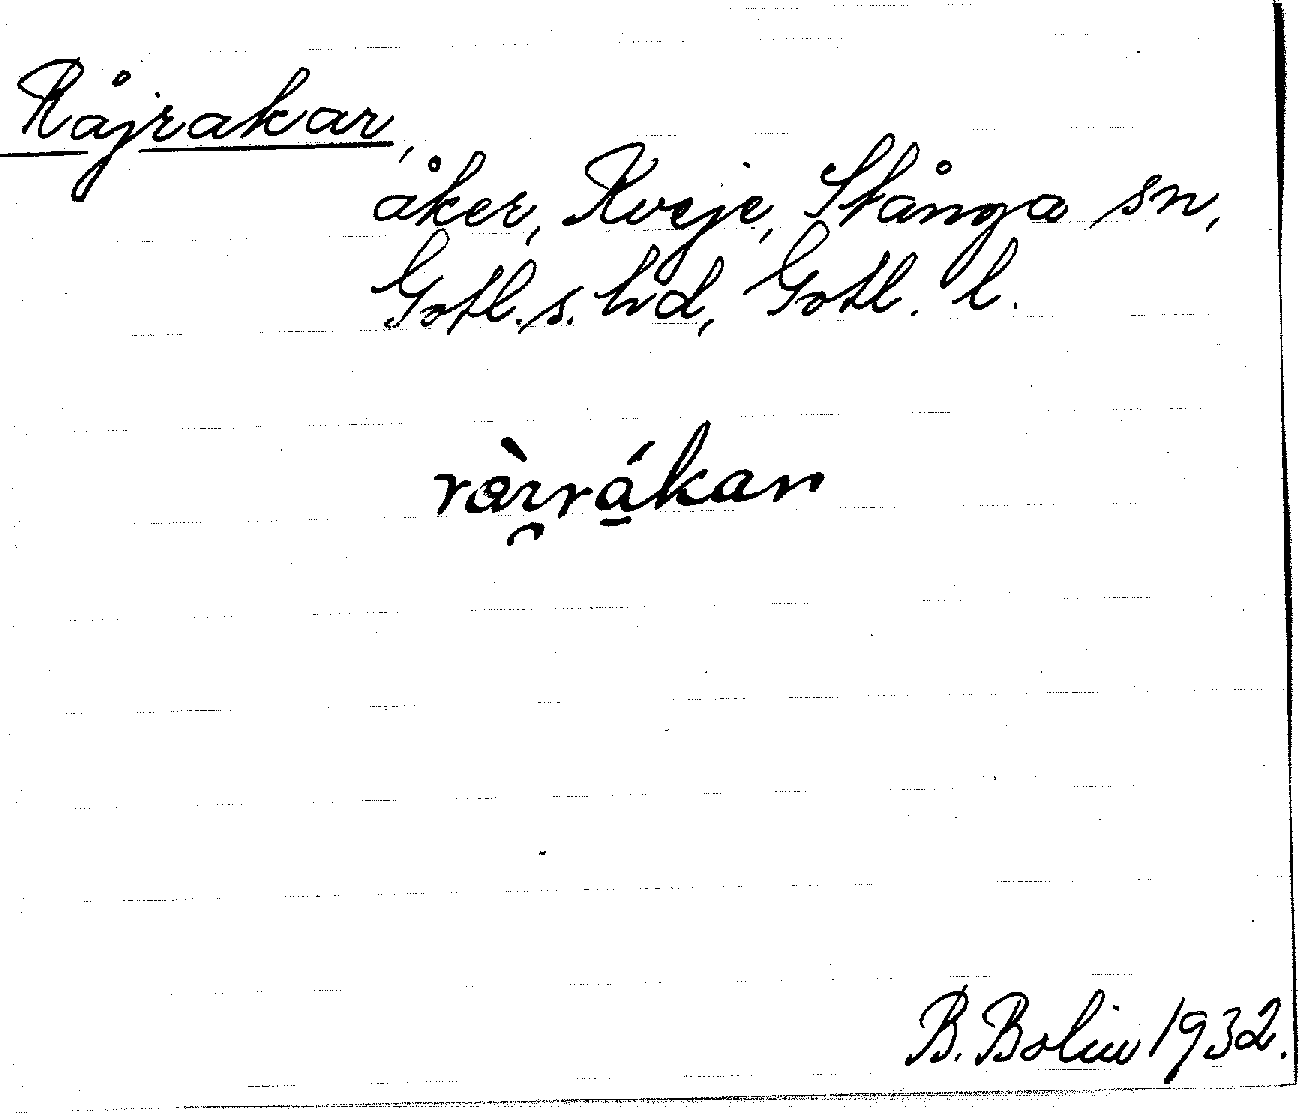 Råjrakar,
åker, Kveje, Stånga sn,
Gotl. s. hd, Gotl. l.
B. Bolin 1932.